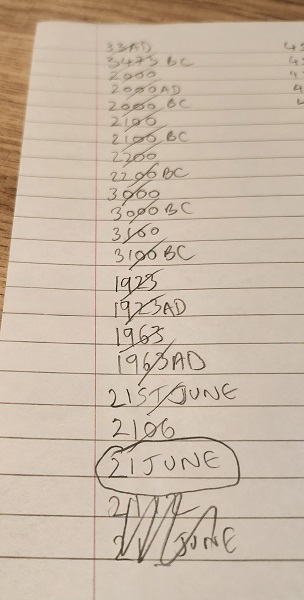 33AD
3475 BC
2000
2000AD
2000 BC
2100
2100 BC
2200
2200 BC
3000
3000 BC
3100
3100 BC
1925
1925AD
1963
1963AD
21ST JUNE
2106
21 JUNE
JUNE